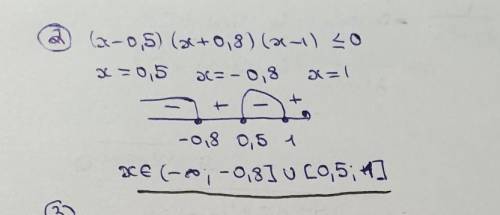 2) (x-0,5) (x+0,8) (x-1) ≤0
x=0,5 x=-0,8 x=1
- + - +
-0,8 0,5 1
x∈ (-∞; -0,8] ∪ [0,5; 1]